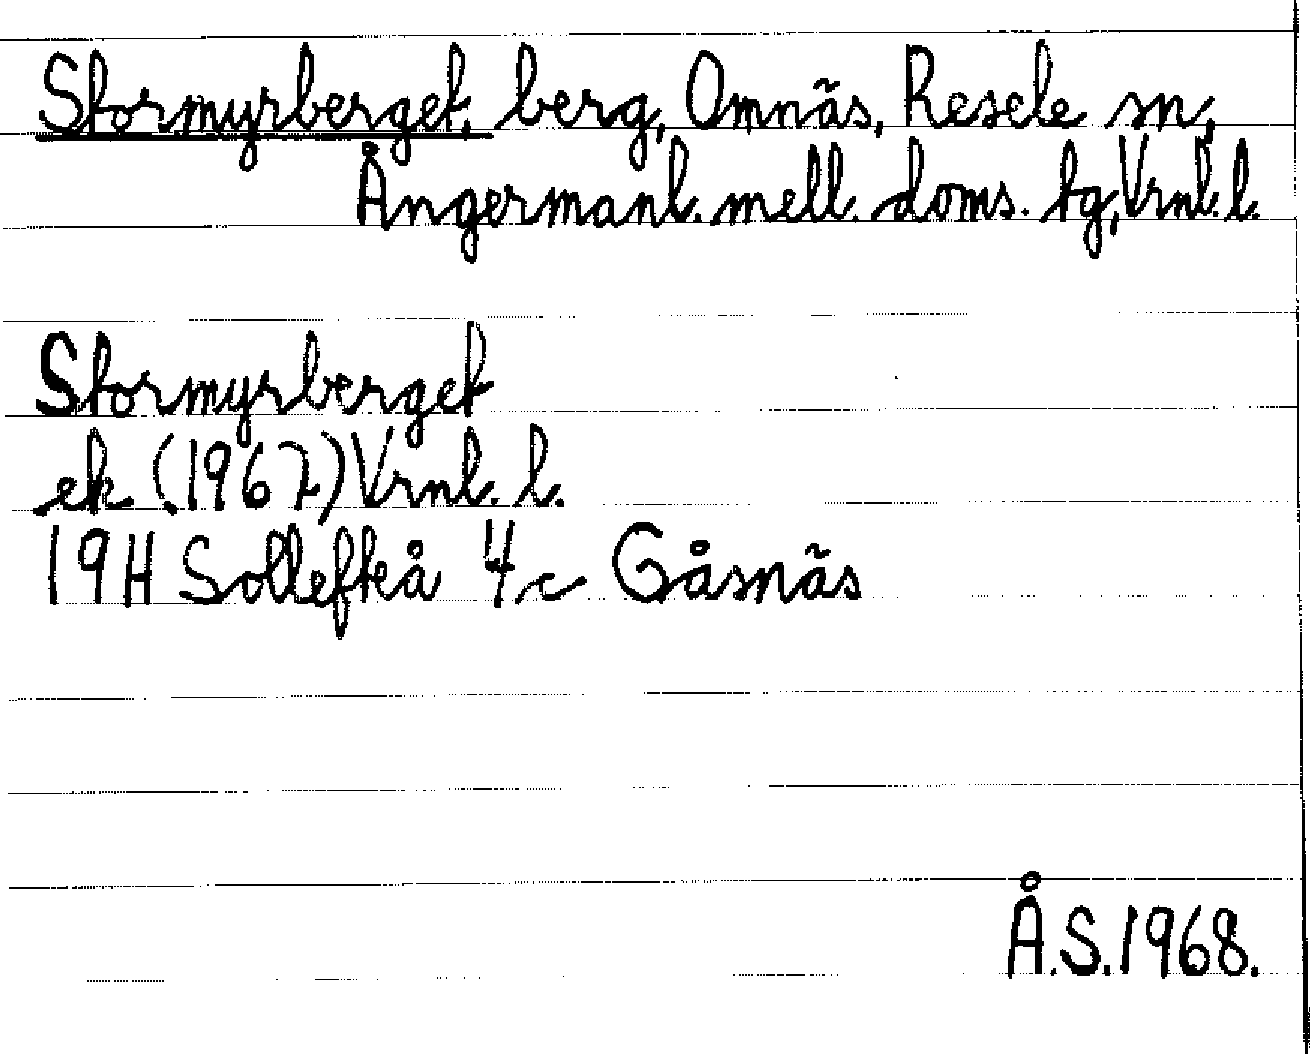 Stormyrberget, berg, Omnäs, Resele sn,
Ångermanl. mell. doms. tg, Vrnl. l.
Stormyrberget
ek (1967) Vrnl. l.
19H Sollefteå 4c Gåsnäs
Å.S. 1968.